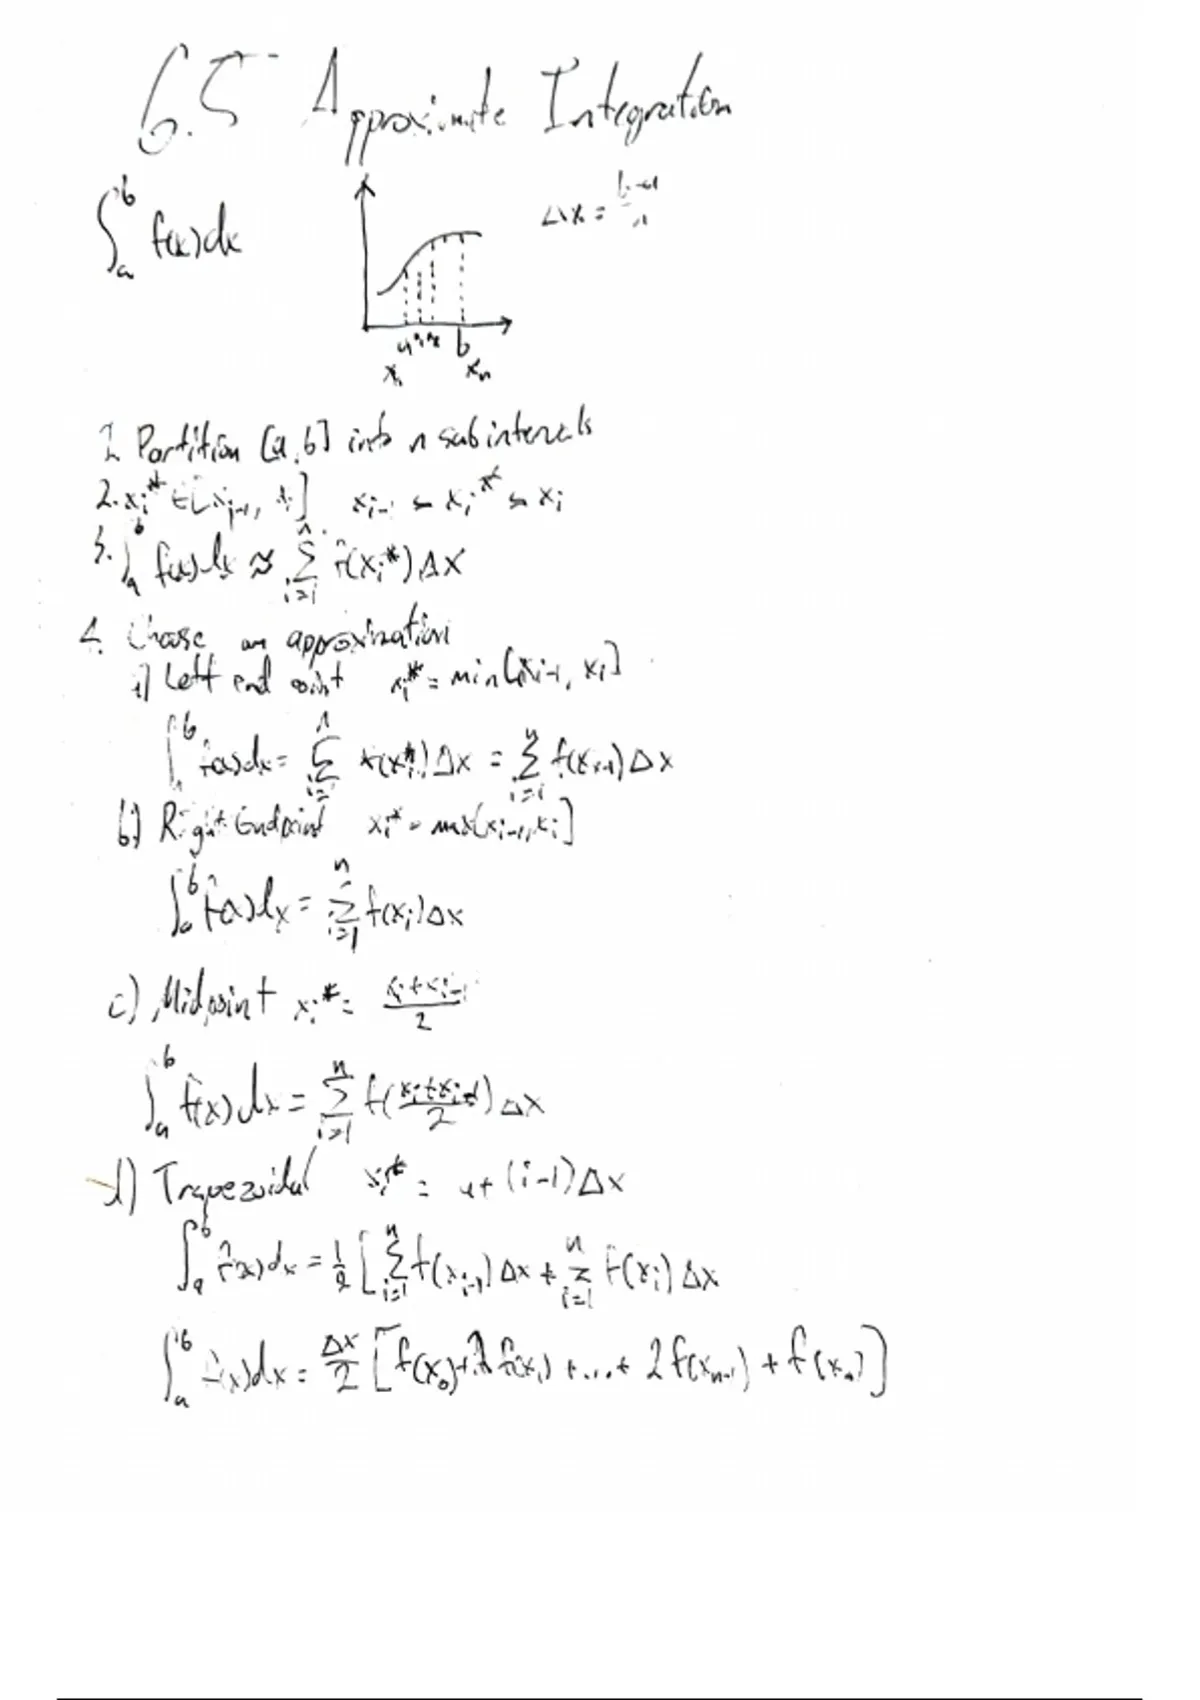 6.5 Approximate Integration
∫_a^b f(x)dx
Δx = (b-a)/n
a x₁ x₂ b
x₀ x_n
1. Partition [a,b] into n subintervals
2. x_i* ∈ [x_{i-1}, x_i] x_{i-1} ≤ x_i* ≤ x_i
3. ∫_a^b f(x)dx ≈ Σ_{i=1}^n f(x_i*)Δx
4. Choose an approximation
a) Left end point x_i* = min[x_{i-1}, x_i]
∫_a^b f(x)dx = Σ_{i=1}^n f(x_i*)Δx = Σ_{i=1}^n f(x_{i-1})Δx
b) Right Endpoint x_i* = max[x_{i-1}, x_i]
∫_a^b f(x)dx = Σ_{i=1}^n f(x_i)Δx
c) Midpoint x_i* = (x_i+x_{i-1})/2
∫_a^b f(x)dx = Σ_{i=1}^n f((x_i+x_{i-1})/2)Δx
d) Trapezoidal x_i* = a+(i-1)Δx
∫_a^b f(x)dx = 1/2 [Σ_{i=1}^n f(x_{i-1})Δx + Σ_{i=1}^n f(x_i)Δx
∫_a^b f(x)dx = Δx/2 [f(x₀)+2f(x₁)+...+2f(x_{n-1})+f(x_n)]